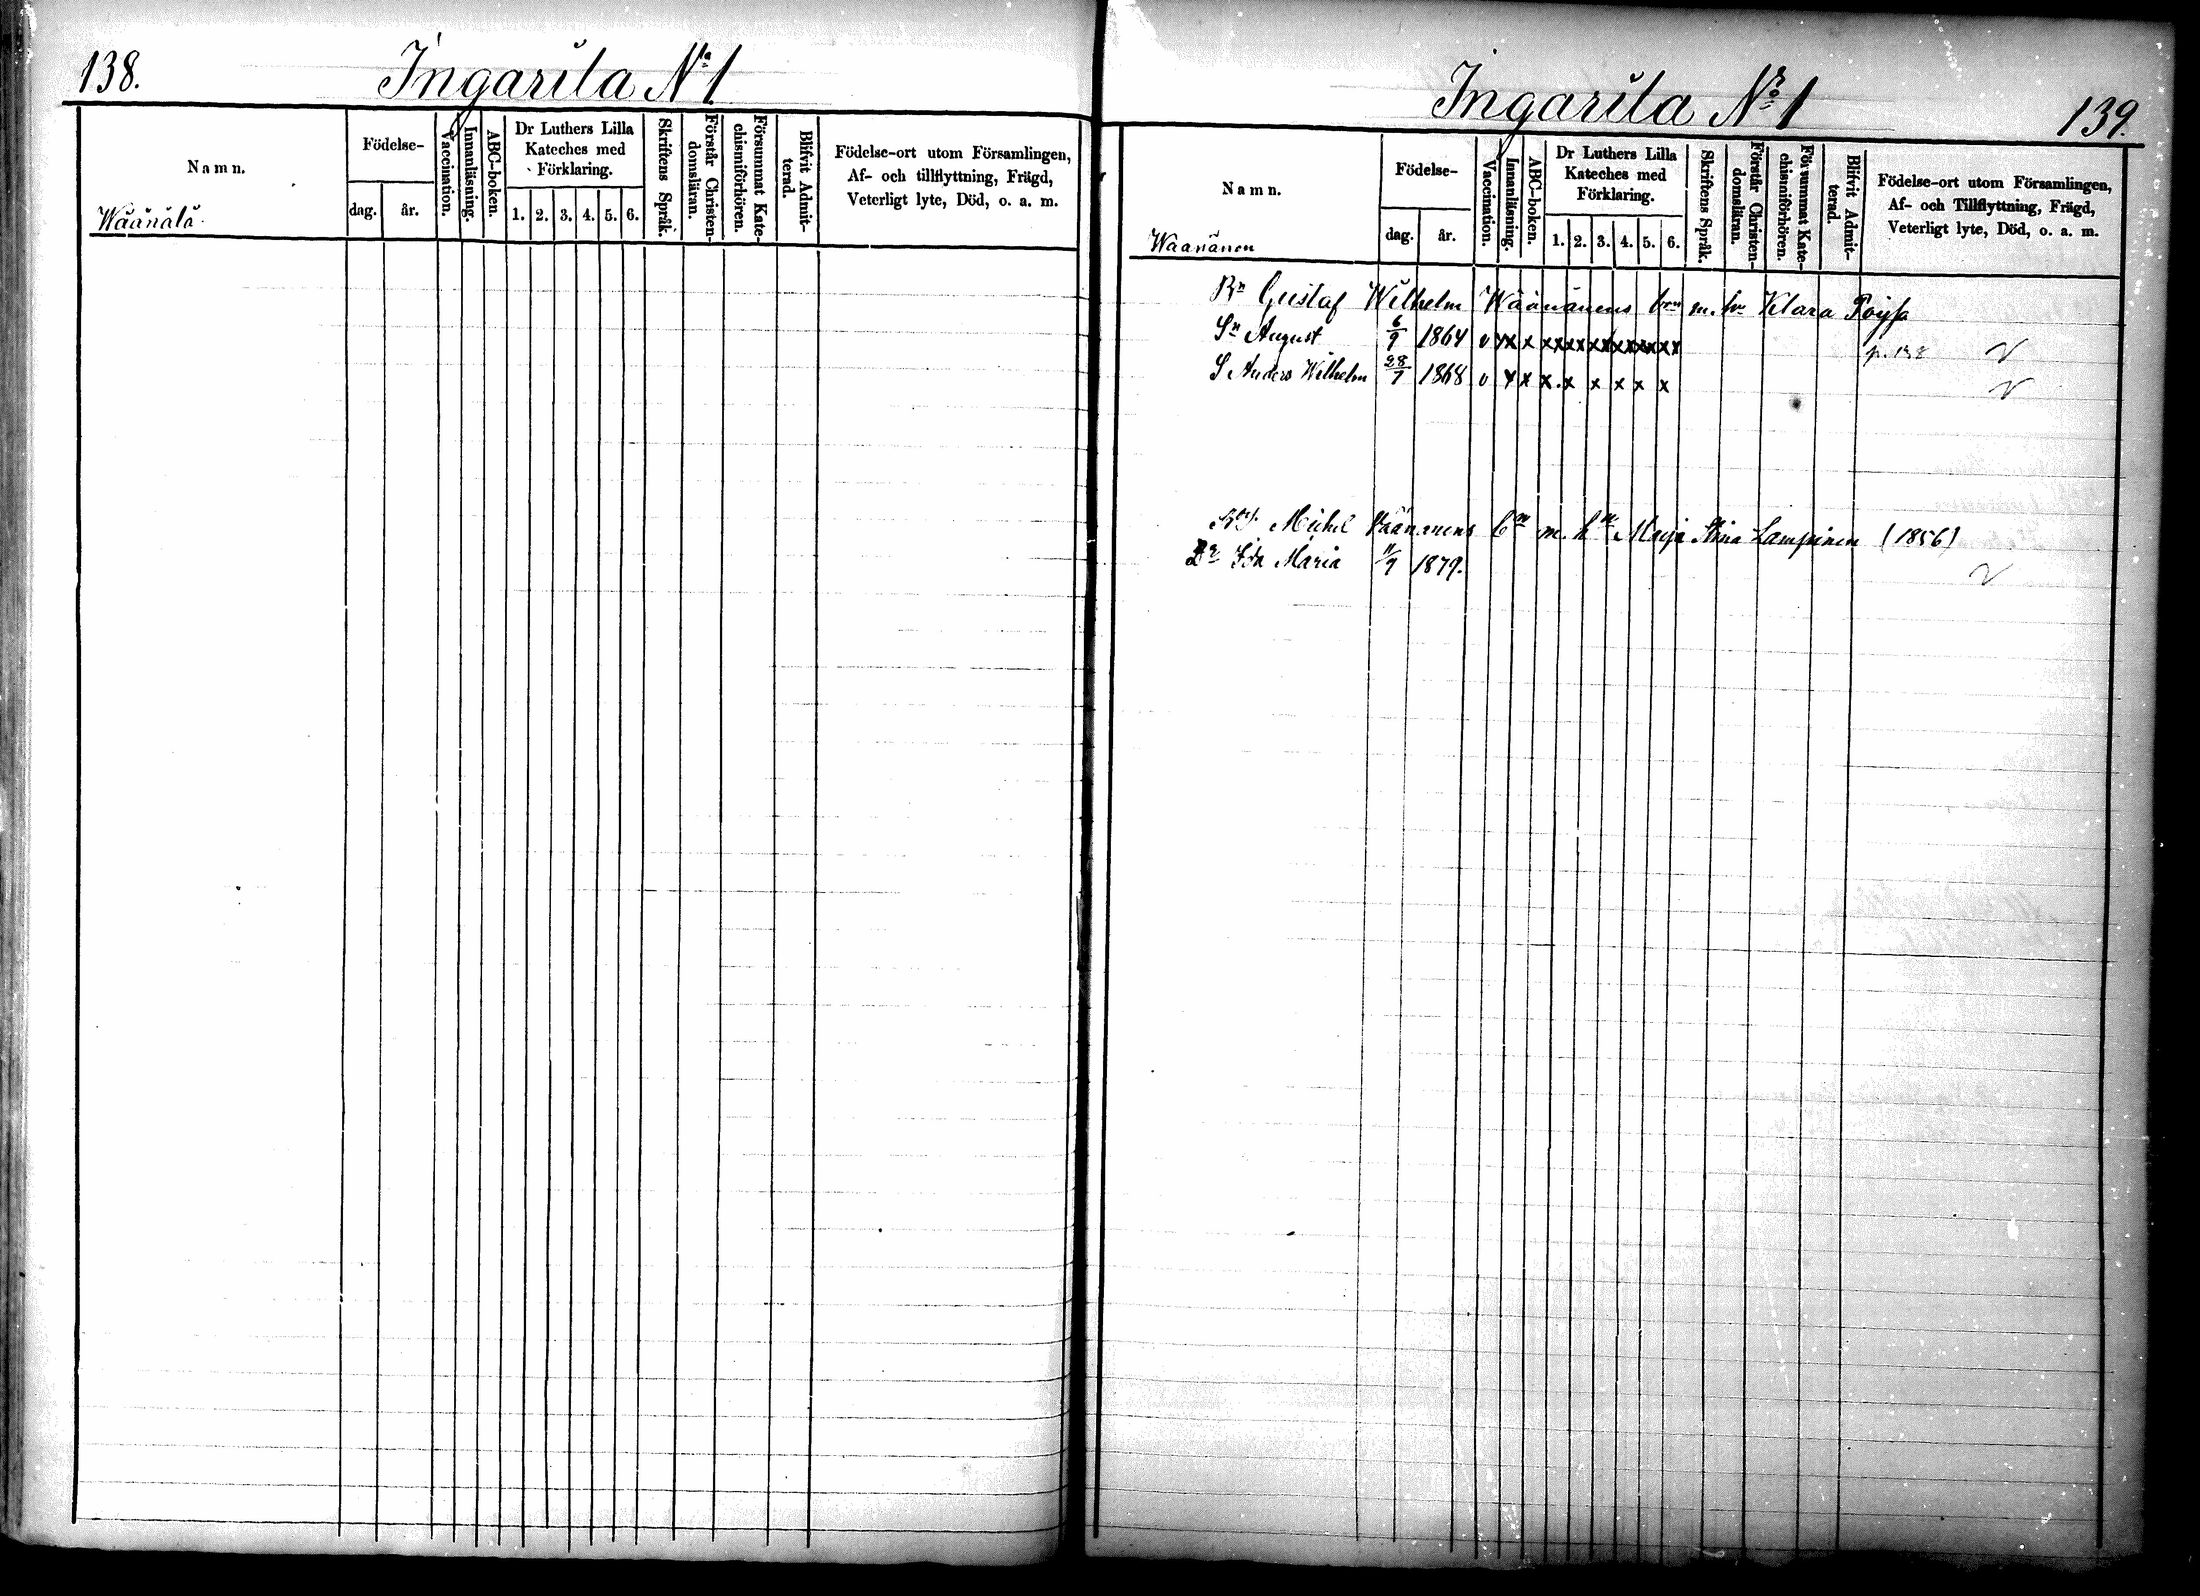 138. Ingarila N:o 1
Namn.
Födelse-
dag. år.
Vaccination.
Innanläsning.
ABC-boken.
Dr Luthers Lilla
Kateches med
Förklaring.
1. 2. 3. 4. 5. 6.
Skriftens Språk.
Förstår Christen-
domsläran.
Försummat Kate-
chismiförhören.
Blifvit Admit-
terad.
Födelse-ort utom Församlingen,
Af- och tillflyttning, Frägd,
Veterligt lyte, Död, o. a. m.
Wäänälä
Ingarila N:o 1 139.
Namn.
Födelse-
dag. år.
Vaccination.
Innanläsning.
ABC-boken.
Dr Luthers Lilla
Kateches med
Förklaring.
1. 2. 3. 4. 5. 6.
Skriftens Språk.
Förstår Christen-
domsläran.
Försummat Kate-
chismiförhören.
Blifvit Admit-
terad.
Födelse-ort utom Församlingen,
Af- och Tillflyttning, Frägd,
Veterligt lyte, Död, o. a. m.
Waanänen
Bn Gustaf Wilhelm Wäänänens brn m. hn Klara Pöysä
Sn August 6/9 1864 v x x x x x x x x x x x x p. 138 v
S Anders Wilhelm 28/7 1868 v x x x x x x x x v
Michel Väänänens bn m. hn Maja Stina Lampinen (1856)
Dr Ida Maria 11/9 1879. v